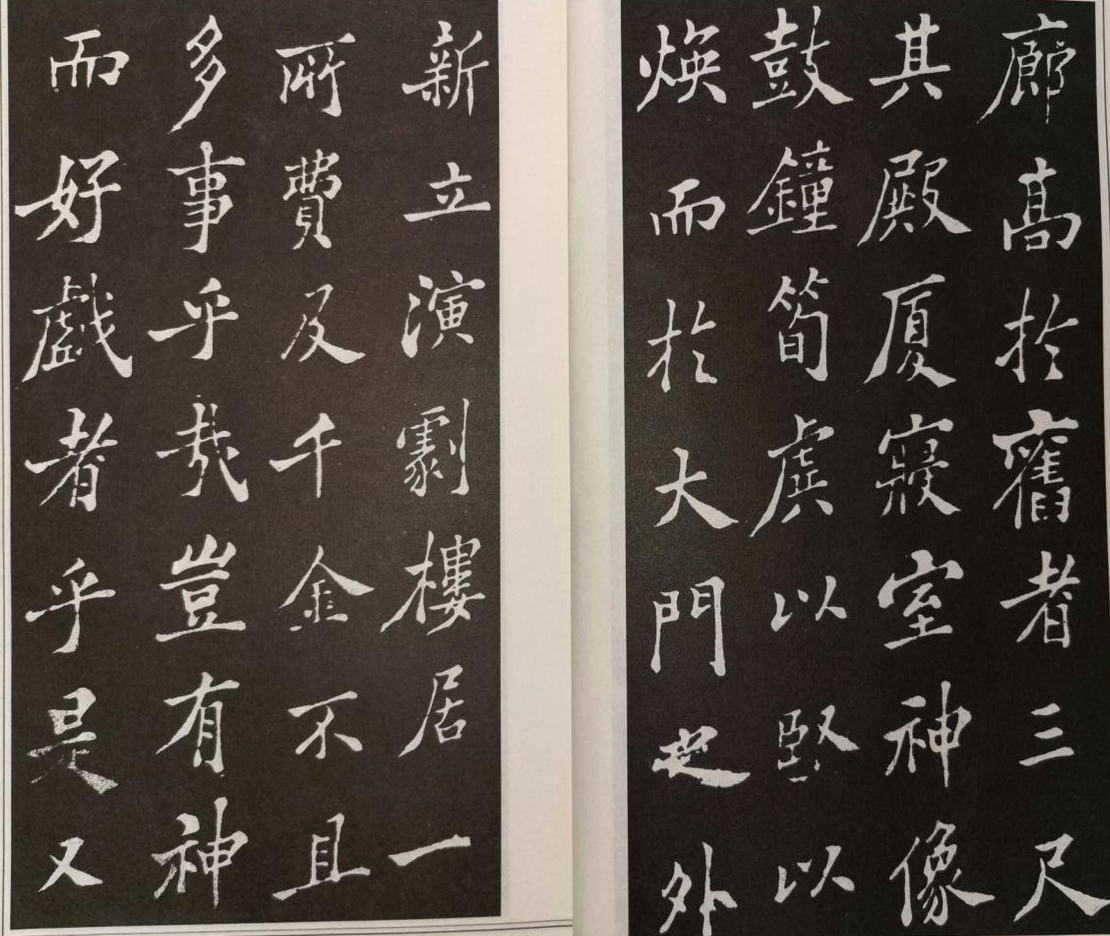 廊高於舊者三尺
其殿厦寢室神像
鼓鐘筍虡以堅以
煥而於大門之外
新立演劇樓居一
所費及千金不且
多事乎哉豈有神
而好戲者乎是又